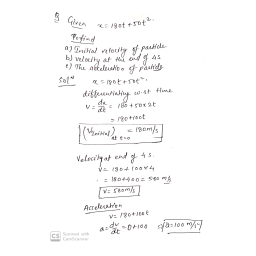 Q Given x = 180t + 50t².
To find
a) Initial velocity of particle
b) velocity at the end of 4s
c) The acceleration of particle
Solⁿ x = 180t + 50t².
differentiating w.r.t time
V = dx/dt = 180 + 50x2t
= 180 + 100t
(V initial) at t=0 = 180 m/s
Velocity at end of 4 s.
V = 180 + 100x4
= 180 + 400 = 580 m/s
V = 580 m/s
Acceleration
V = 180 + 100t
a = dv/dt = 0 + 100 a = 100 m/s²
CS Scanned with
CamScanner